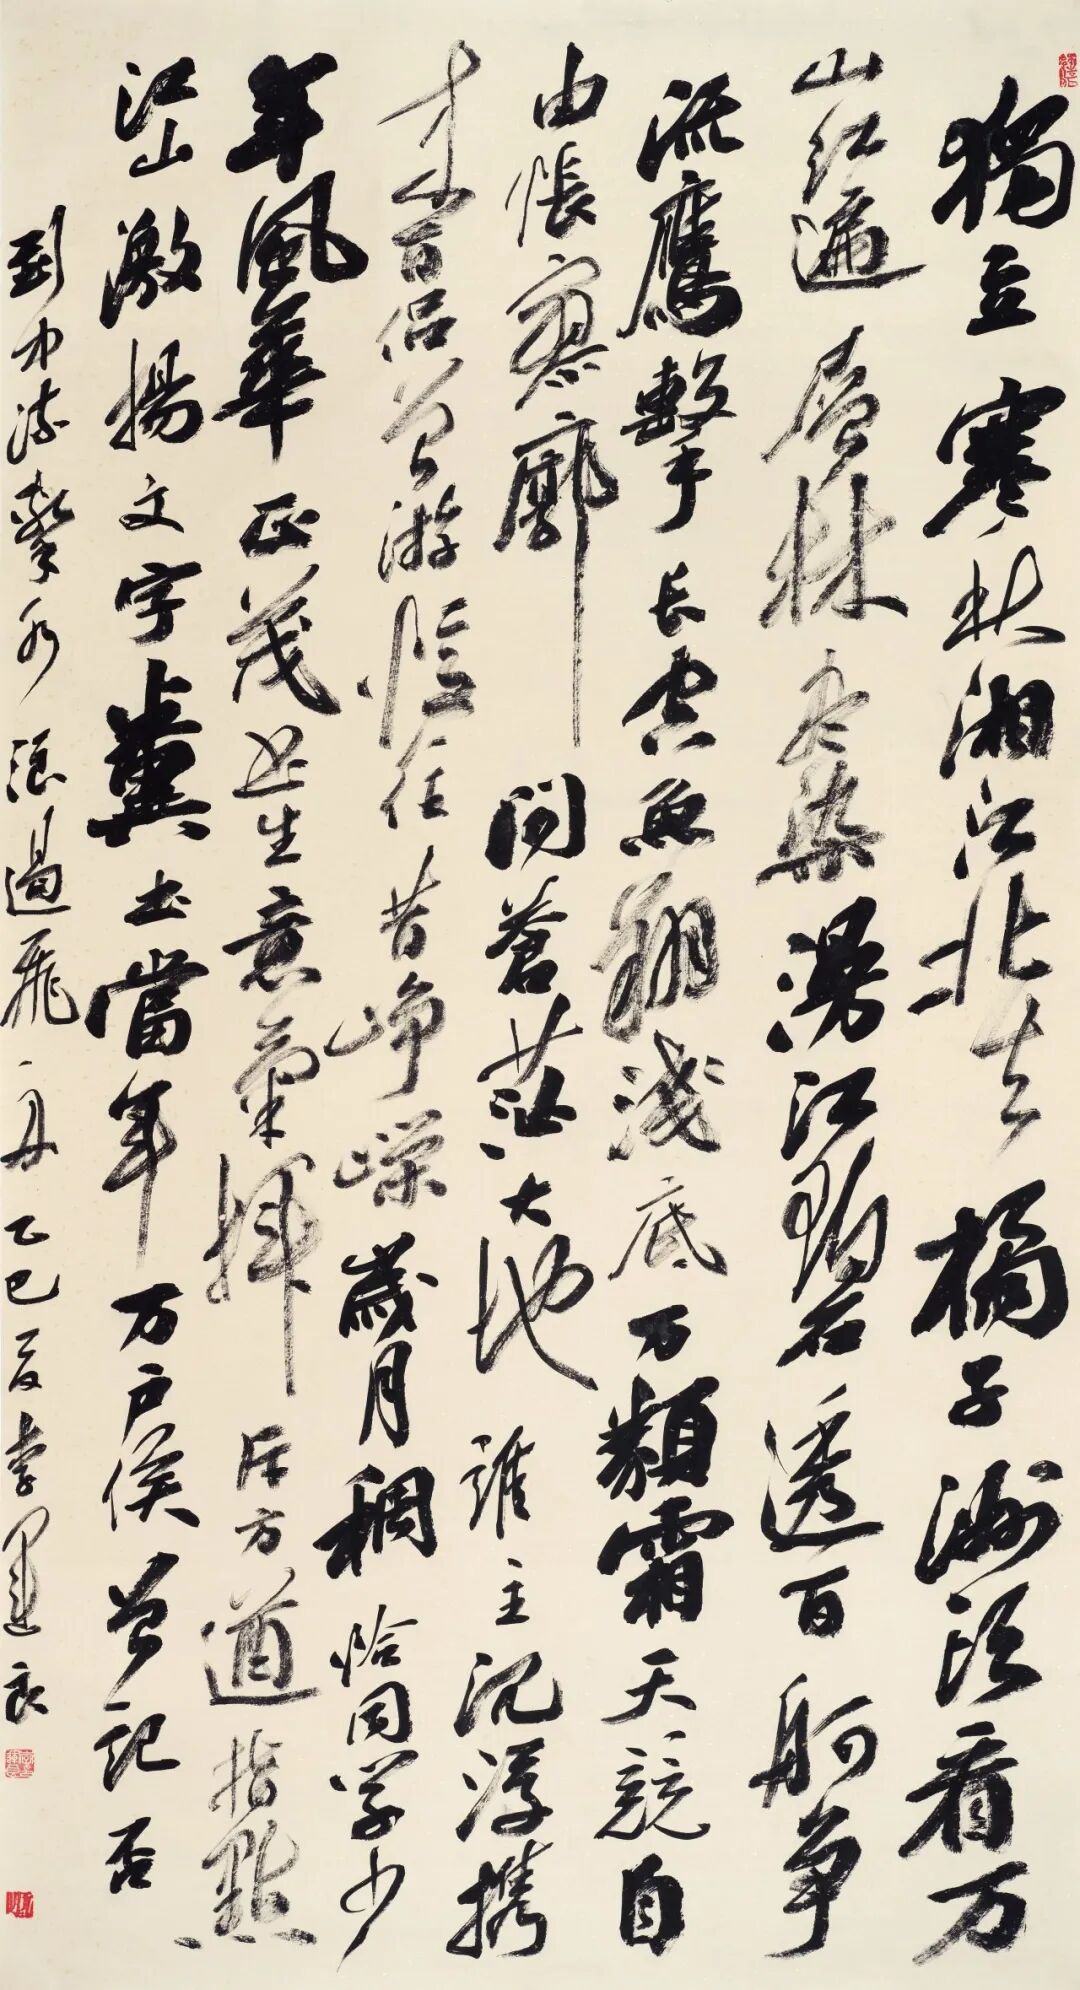 獨立寒秋湘江北去橘子洲頭看万
山红遍層林尽染漫江碧透百舸争
流鷹擊长空魚翔淺底万類霜天競自
由悵寥廓問蒼茫大地誰主沉浮携
来百侣曾游憶往昔峥嵘歲月稠恰同学少
年風華正茂书生意氣揮斥方遒指點
江山激揚文字糞土當年万户侯曾記否
到中流擊水浪遏飛舟 乙巳夏李運良